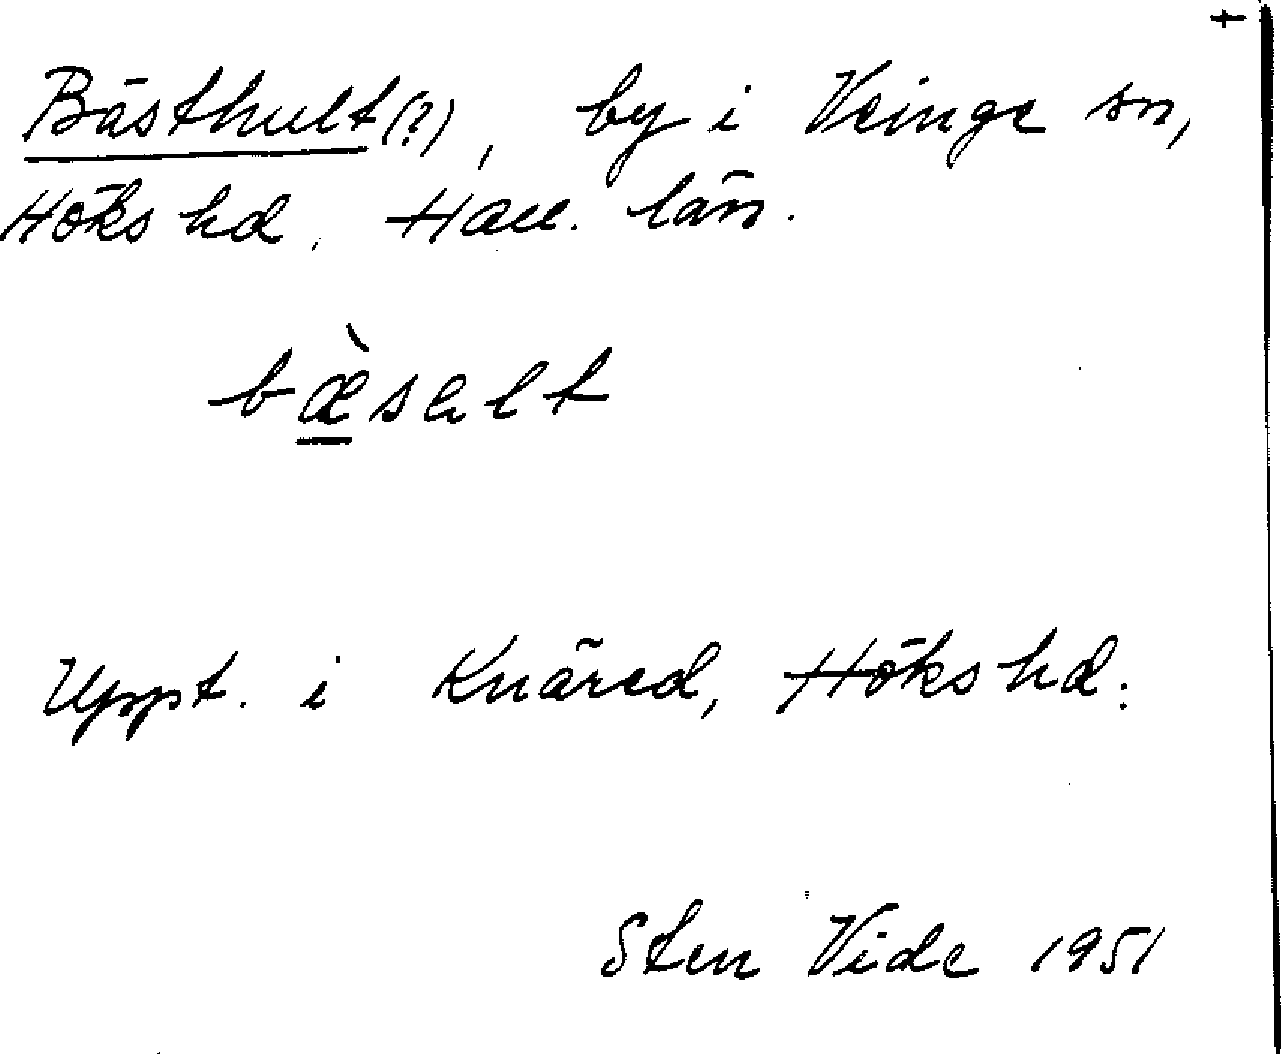 †
Bästhult(?), by i Veinge sn,
Höks hd. Hall. län.
bæ̀salt
Uppt. i Knäred, Höks hd.
Sten Vide 1951